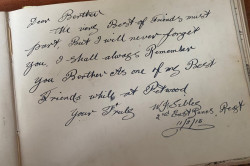 Dear Berther
The very Best of Friends must
part, But I will never forget
you. I shall always Remember
you Berther As one of my Best
Friends while at Petwood
Your Truly
2nd East Lancs. Regt